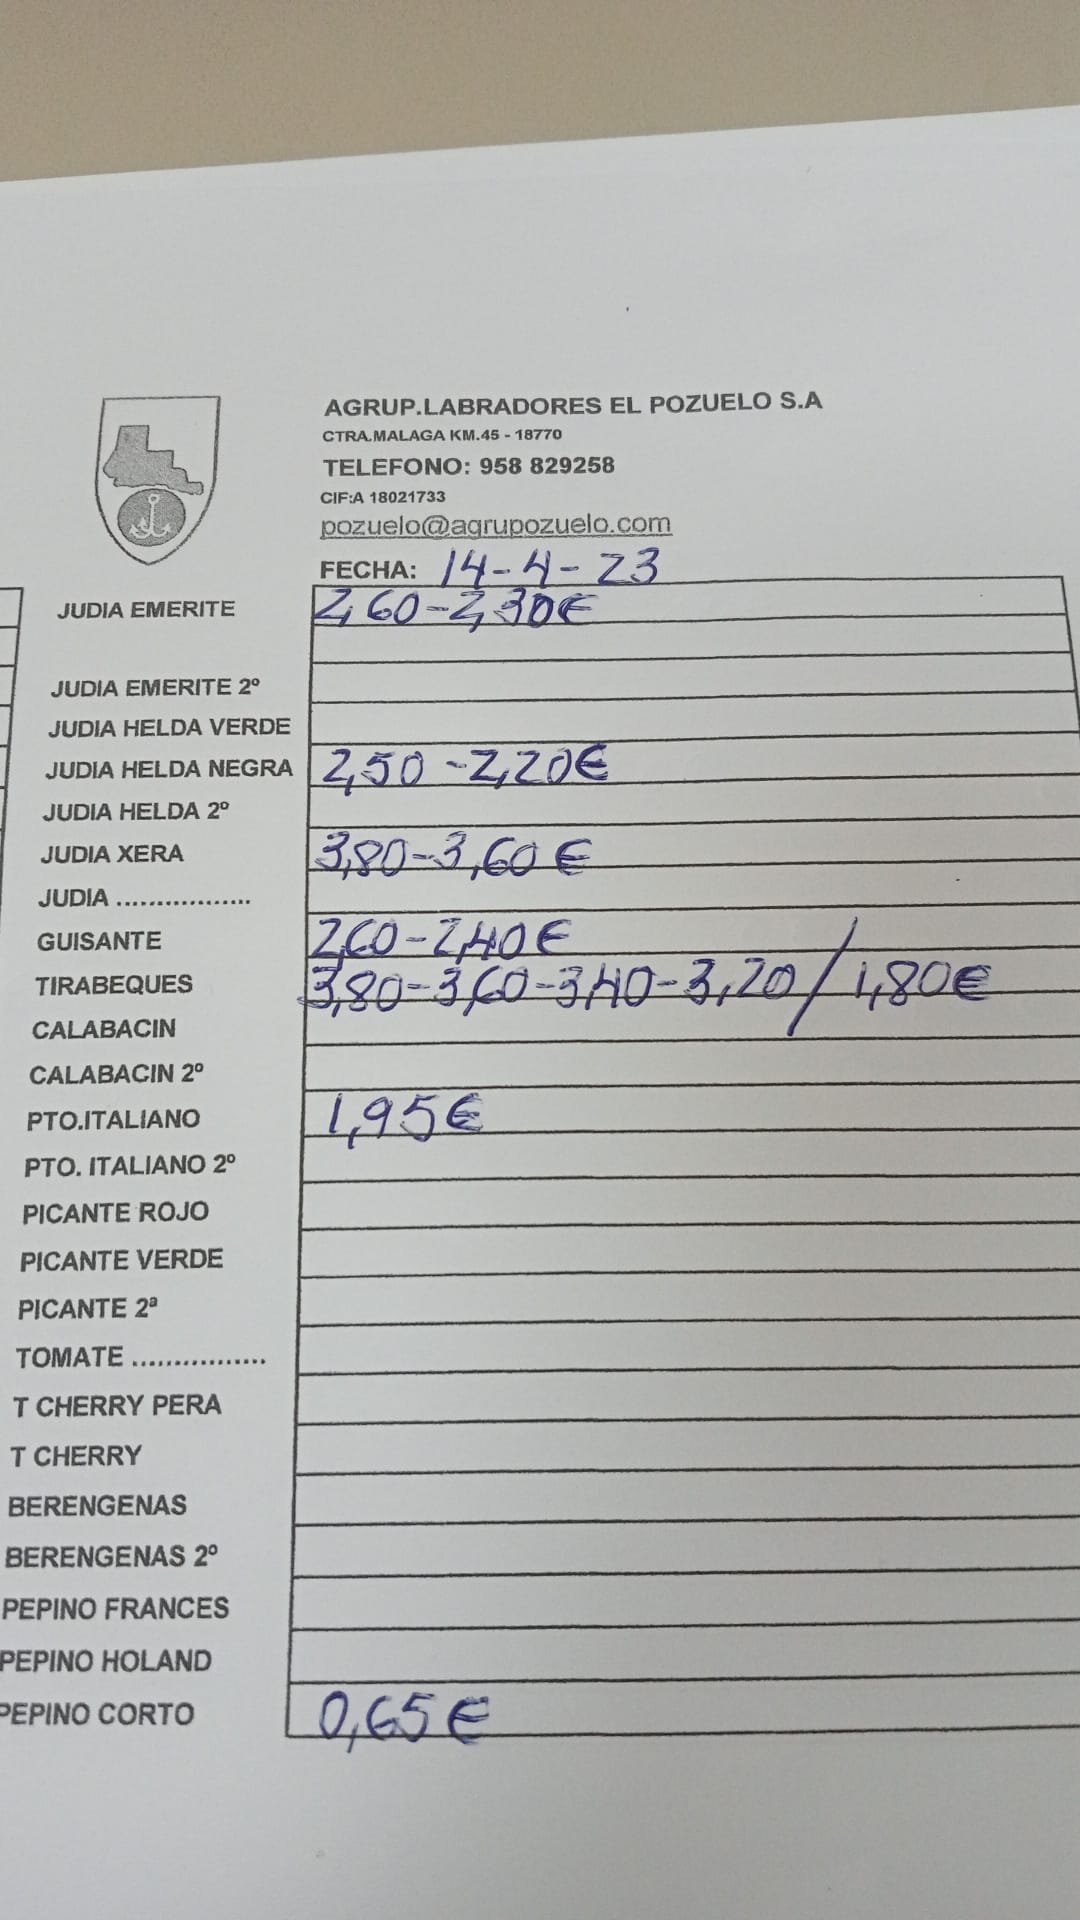 AGRUP.LABRADORES EL POZUELO S.A
CTRA.MALAGA KM.45 - 18770
TELEFONO: 958 829258
CIF:A 18021733
pozuelo@agrupozuelo.com
FECHA: 14-4-23
JUDIA EMERITE 2,60-2,30€
JUDIA EMERITE 2º
JUDIA HELDA VERDE
JUDIA HELDA NEGRA 2,50-2,20€
JUDIA HELDA 2º
JUDIA XERA 3,80-3,60€
JUDIA ................
GUISANTE 2,60-2,40€
TIRABEQUES 3,80-3,60-3,40-3,20/1,80€
CALABACIN
CALABACIN 2º
PTO.ITALIANO 1,95€
PTO. ITALIANO 2º
PICANTE ROJO
PICANTE VERDE
PICANTE 2ª
TOMATE ................
T CHERRY PERA
T CHERRY
BERENGENAS
BERENGENAS 2º
PEPINO FRANCES
PEPINO HOLAND
PEPINO CORTO 0,65€